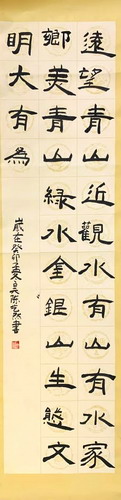 遠望青山近觀水有山有水家
鄉美青山綠水金銀山生態文
明大有為
歲在癸卯之夏吳陳書